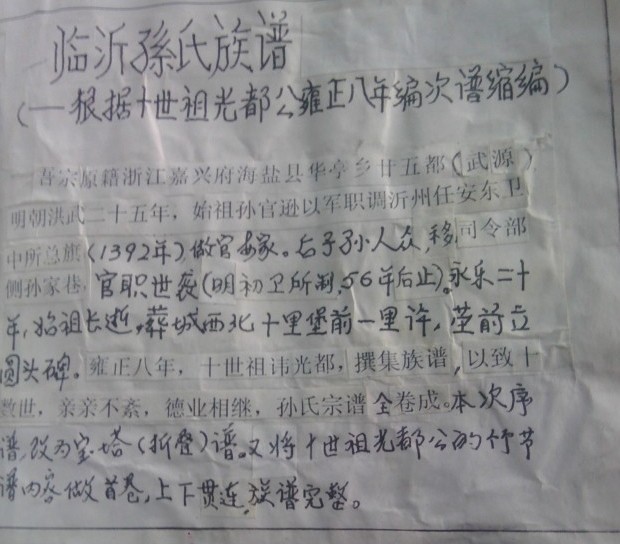 临沂孫氏族谱
(一根据十世祖光都公雍正八年编次谱缩编)
吾宗原籍浙江嘉兴府海盐县华亭乡廿五都(武源)
明朝洪武二十五年，始祖孙官逊以军职调沂州任安东卫
中所总旗(1392年)做官安家。后子孙人众,移司令部
侧孙家巷,官职世袭(明初卫所制,56年后止)。永乐二十
年,始祖长逝,葬城西北十里堡前一里许,茔前立
圆头碑。雍正八年，十世祖讳光都,撰集族谱,以致十
数世，亲亲不紊，德业相继，孙氏宗谱全卷成。本次序
谱,改为宝塔(折叠)谱。又将十世祖光都公的竹节
谱内容做首卷,上下贯连,族谱完整。